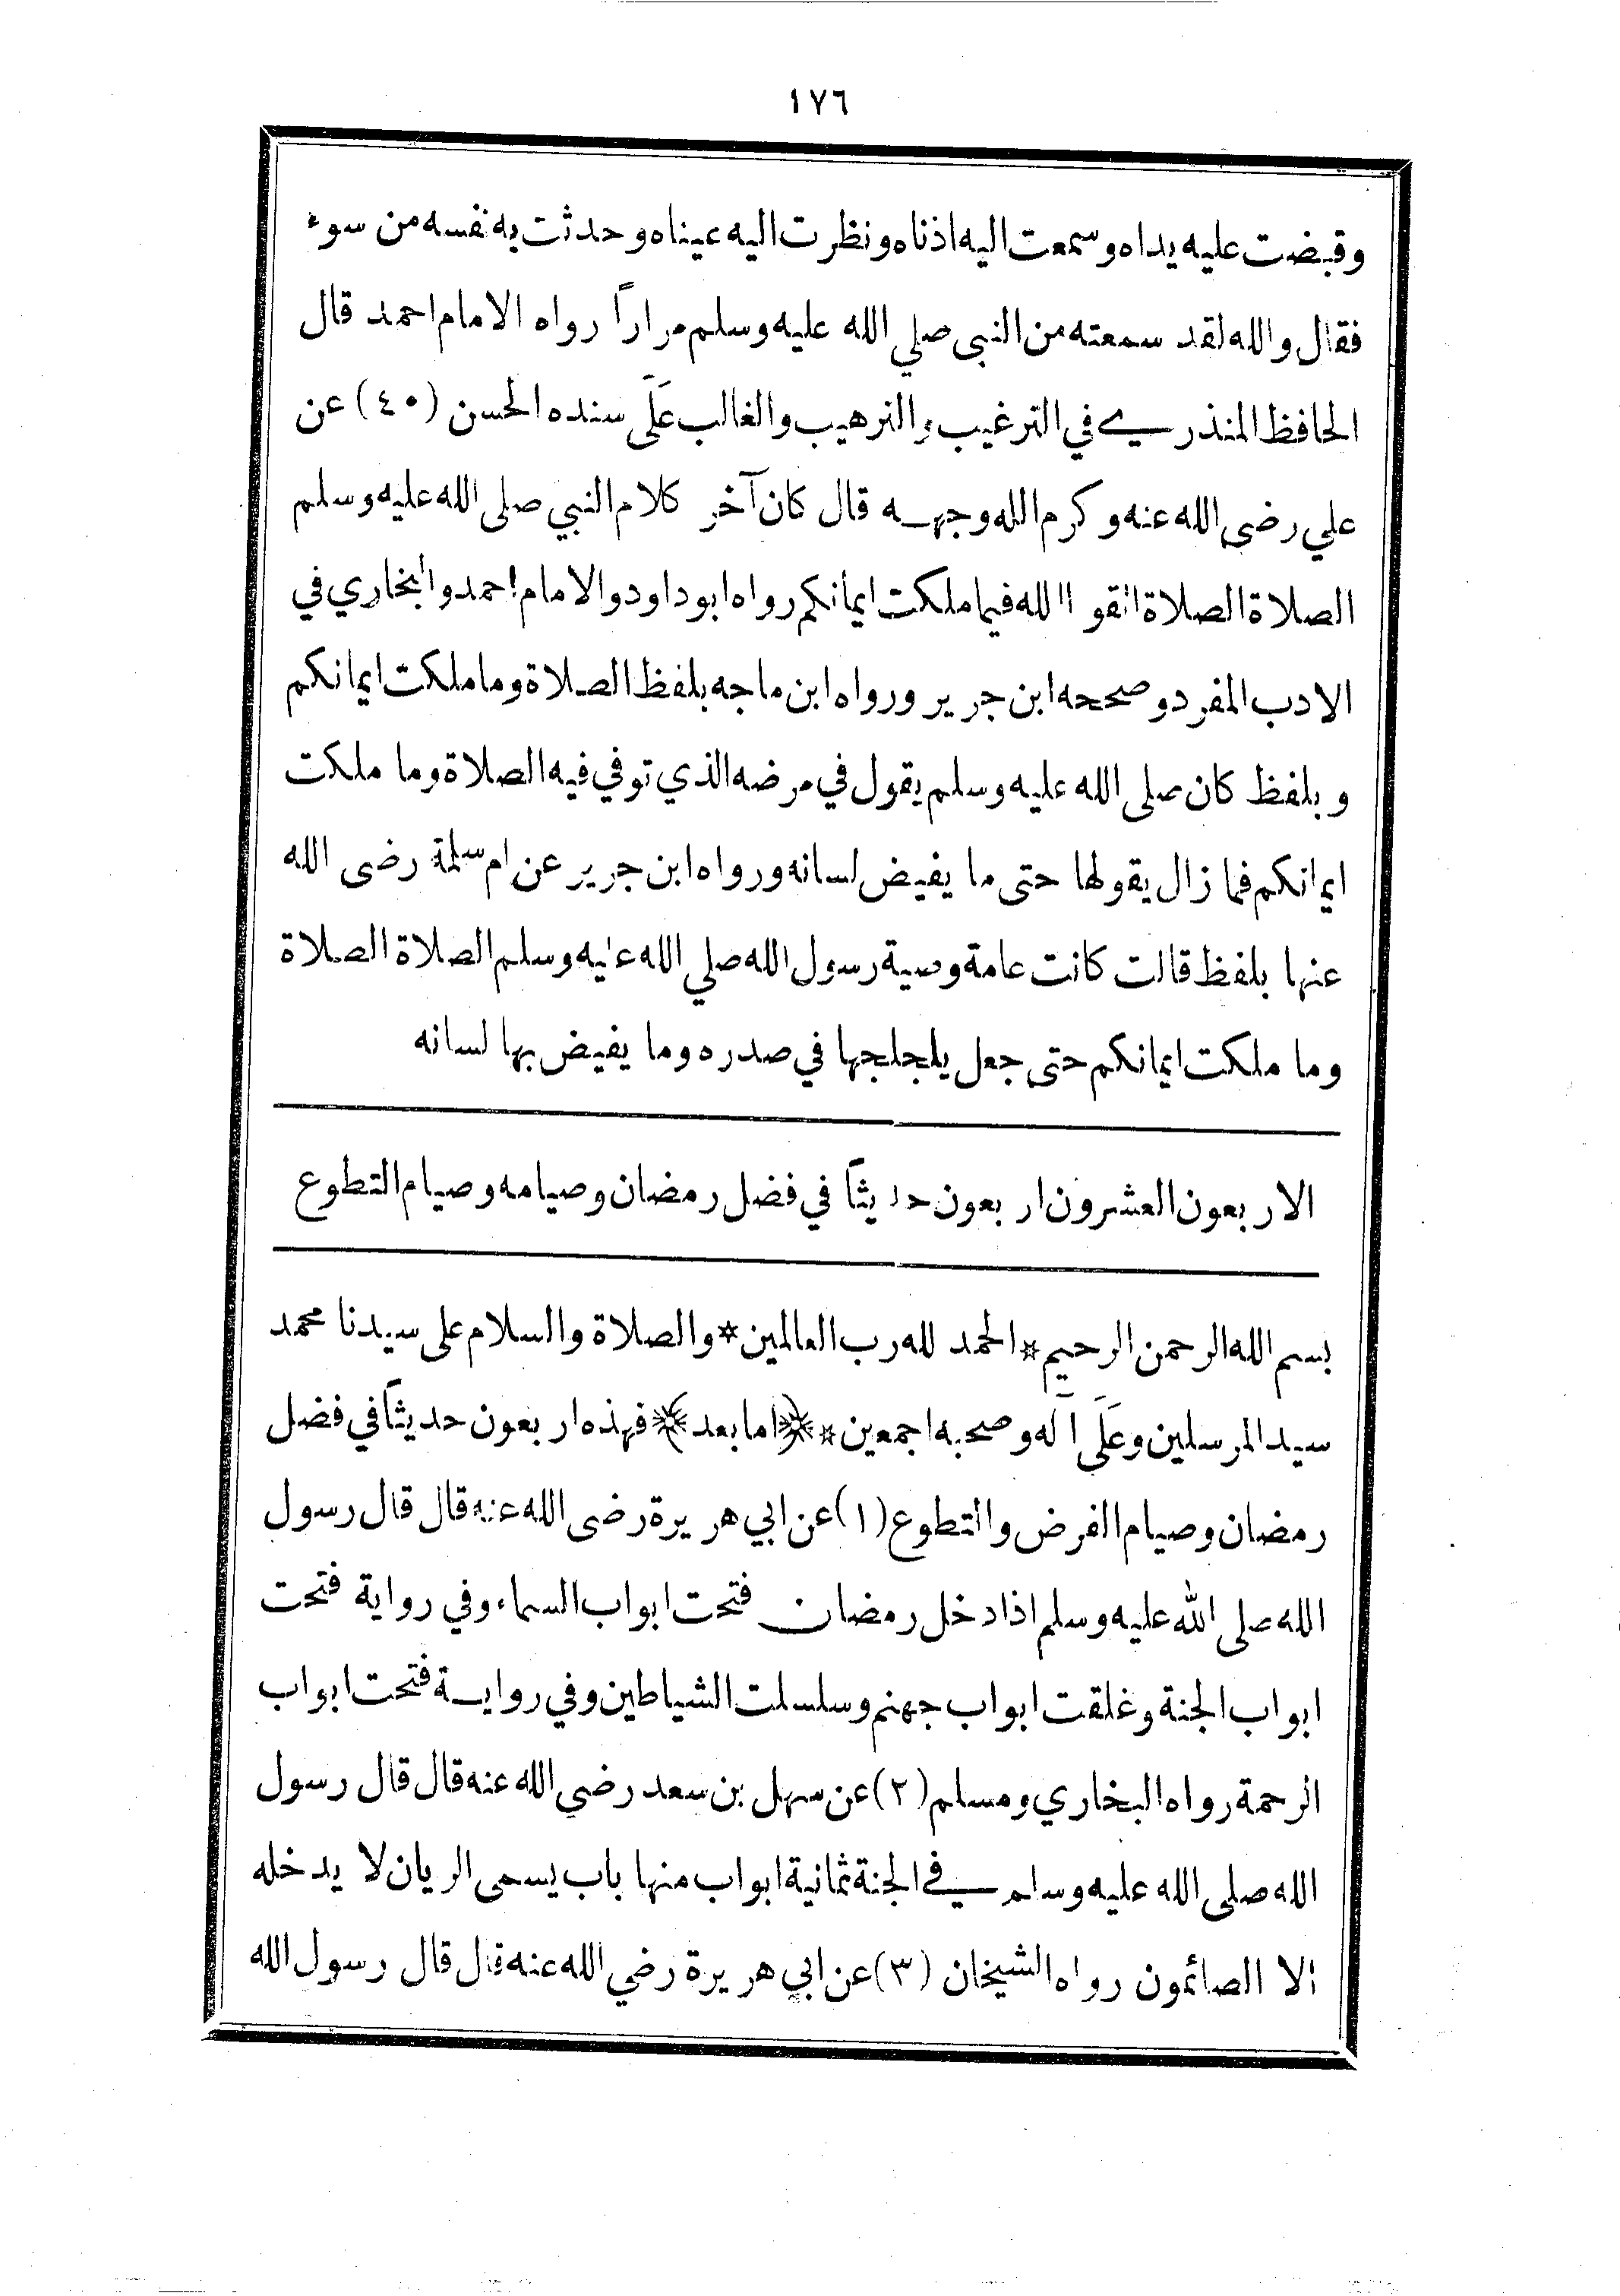 ١٧٦
وقبضت عليه يداه وسمعت اليه اذناه ونظرت اليه عيناه وحدثت به نفسه من سوء
فقال والله لقد سمعته من النبي صلي الله عليه وسلم مراراً رواه الامام احمد قال
الحافظ المنذري في الترغيب والترهيب والغالب عَلَى سنده الحسن (٤٠) عن
علي رضى الله عنه وكرم الله وجهه قال كان آخر كلام النبي صلى الله عليه وسلم
الصلاة الصلاة اتقوا الله فيما ملكت ايمانكم رواه ابو داود والامام احمد والبخاري في
الادب المفرد وصححه ابن جرير ورواه ابن ماجه بلفظ الصلاة وما ملكت ايمانكم
وبلفظ كان صلى الله عليه وسلم يقول في مرضه الذي توفي فيه الصلاة وما ملكت
ايمانكم فما زال يقولها حتى ما يفيض لسانه ورواه ابن جرير عن ام سلمة رضى الله
عنها بلفظ قالت كانت عامة وصية رسول الله صلي الله عليه وسلم الصلاة الصلاة
وما ملكت ايمانكم حتى جعل يلجلجها في صدره وما يفيض بها لسانه
الاربعون العشرون اربعون حديثاً في فضل رمضان وصيامه وصيام التطوع
بسم الله الرحمن الرحيم * الحمد لله رب العالمين * والصلاة والسلام على سيدنا محمد
سيد المرسلين وعَلَى آله وصحبه اجمعين * ﴿اما بعد﴾ فهذه اربعون حديثاً في فضل
رمضان وصيام الفرض والتطوع (١) عن ابي هريرة رضى الله عنه قال قال رسول
الله صلى الله عليه وسلم اذا دخل رمضان فتحت ابواب السماء وفي رواية فتحت
ابواب الجنة وغلقت ابواب جهنم وسلسلت الشياطين وفي رواية فتحت ابواب
الرحمة رواه البخاري ومسلم (٢) عن سهل بن سعد رضي الله عنه قال قال رسول
الله صلى الله عليه وسلم في الجنة ثمانية ابواب منها باب يسمى الريان لا يدخله
الا الصائمون رواه الشيخان (٣) عن ابي هريرة رضي الله عنه قال قال رسول الله